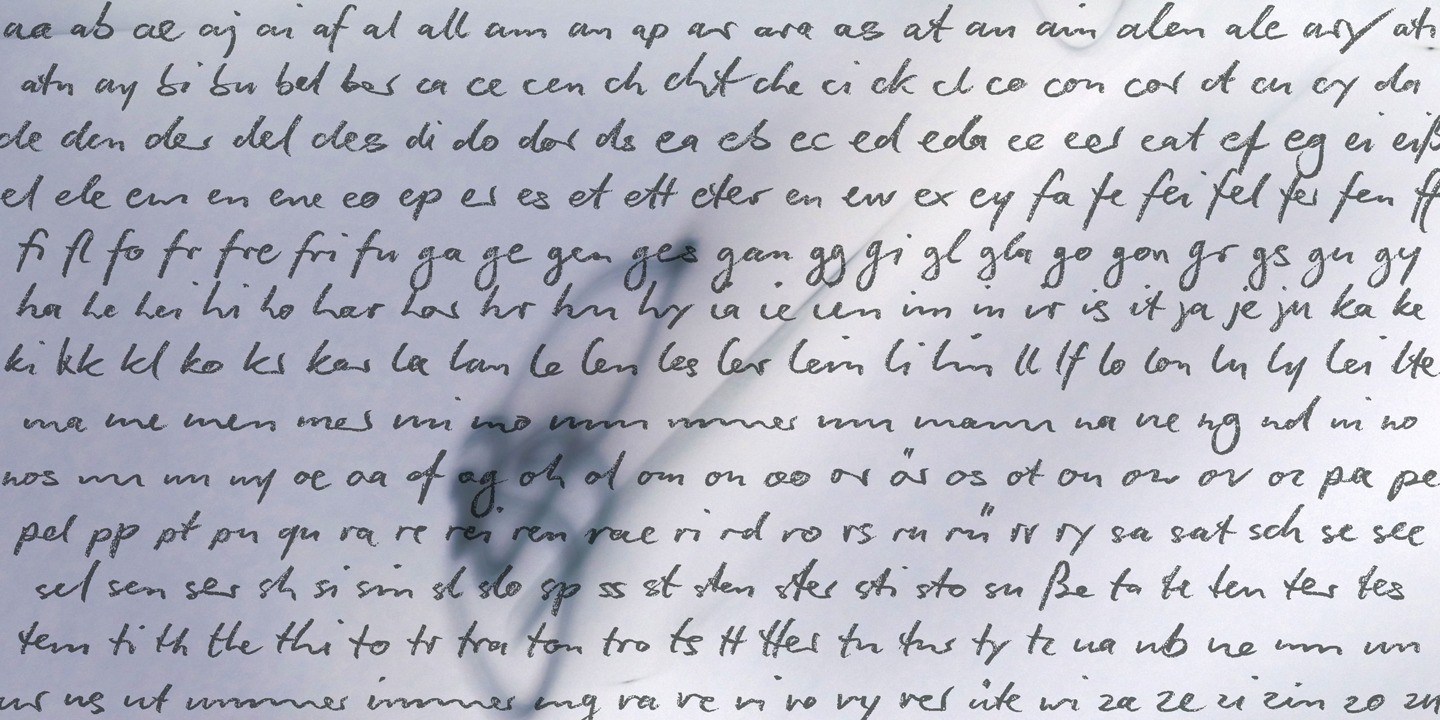 aa ab ae aj ai af al all am an ap ar ara as at au ain alen ale ary ath
atn ay bi bu bel ber ca ce cen ch cht che ci ck cl co con cor ct cu cy da
de den der del des di do dor ds ea eb ec ed eda ee eer eat ef eg ei eiß
el ele em en ene eo ep er es et ett eter eu ew ex ey fa fe fei fel fer fen ff
fi fl fo fr fre fri fu ga ge gen ges gan gg gi gl gla go gon gr gs gu gy
ha he hei hi ho har hos hr hu hy ia ie ien im in ir is it ja je ju ka ke
ki kk kl ko ks kar la lan le len les ler lein li lin ll lf lo lon lu ly lei lte
ma me men mes mi mo mm mmer mm mann na ne ng nd ni no
nos nn un ny oe oa of og oh ol om on oo or är os ot ou ow ov oz pa pe
pel pp pt pu qu ra re rei ren rae ri rd ro rs ru rü rr ry sa sat sch se see
sel sen ser sh si sin sl slo sp ss st sten ster sti sto su ße ta te ten ter tes
tem ti th the thi to tr tra ton tro ts tt tter tu tus ty tz ua ub ue um un
ur us ut ummer immer ung va ve vi vo vy ver üte wi za ze zi zin zo zu